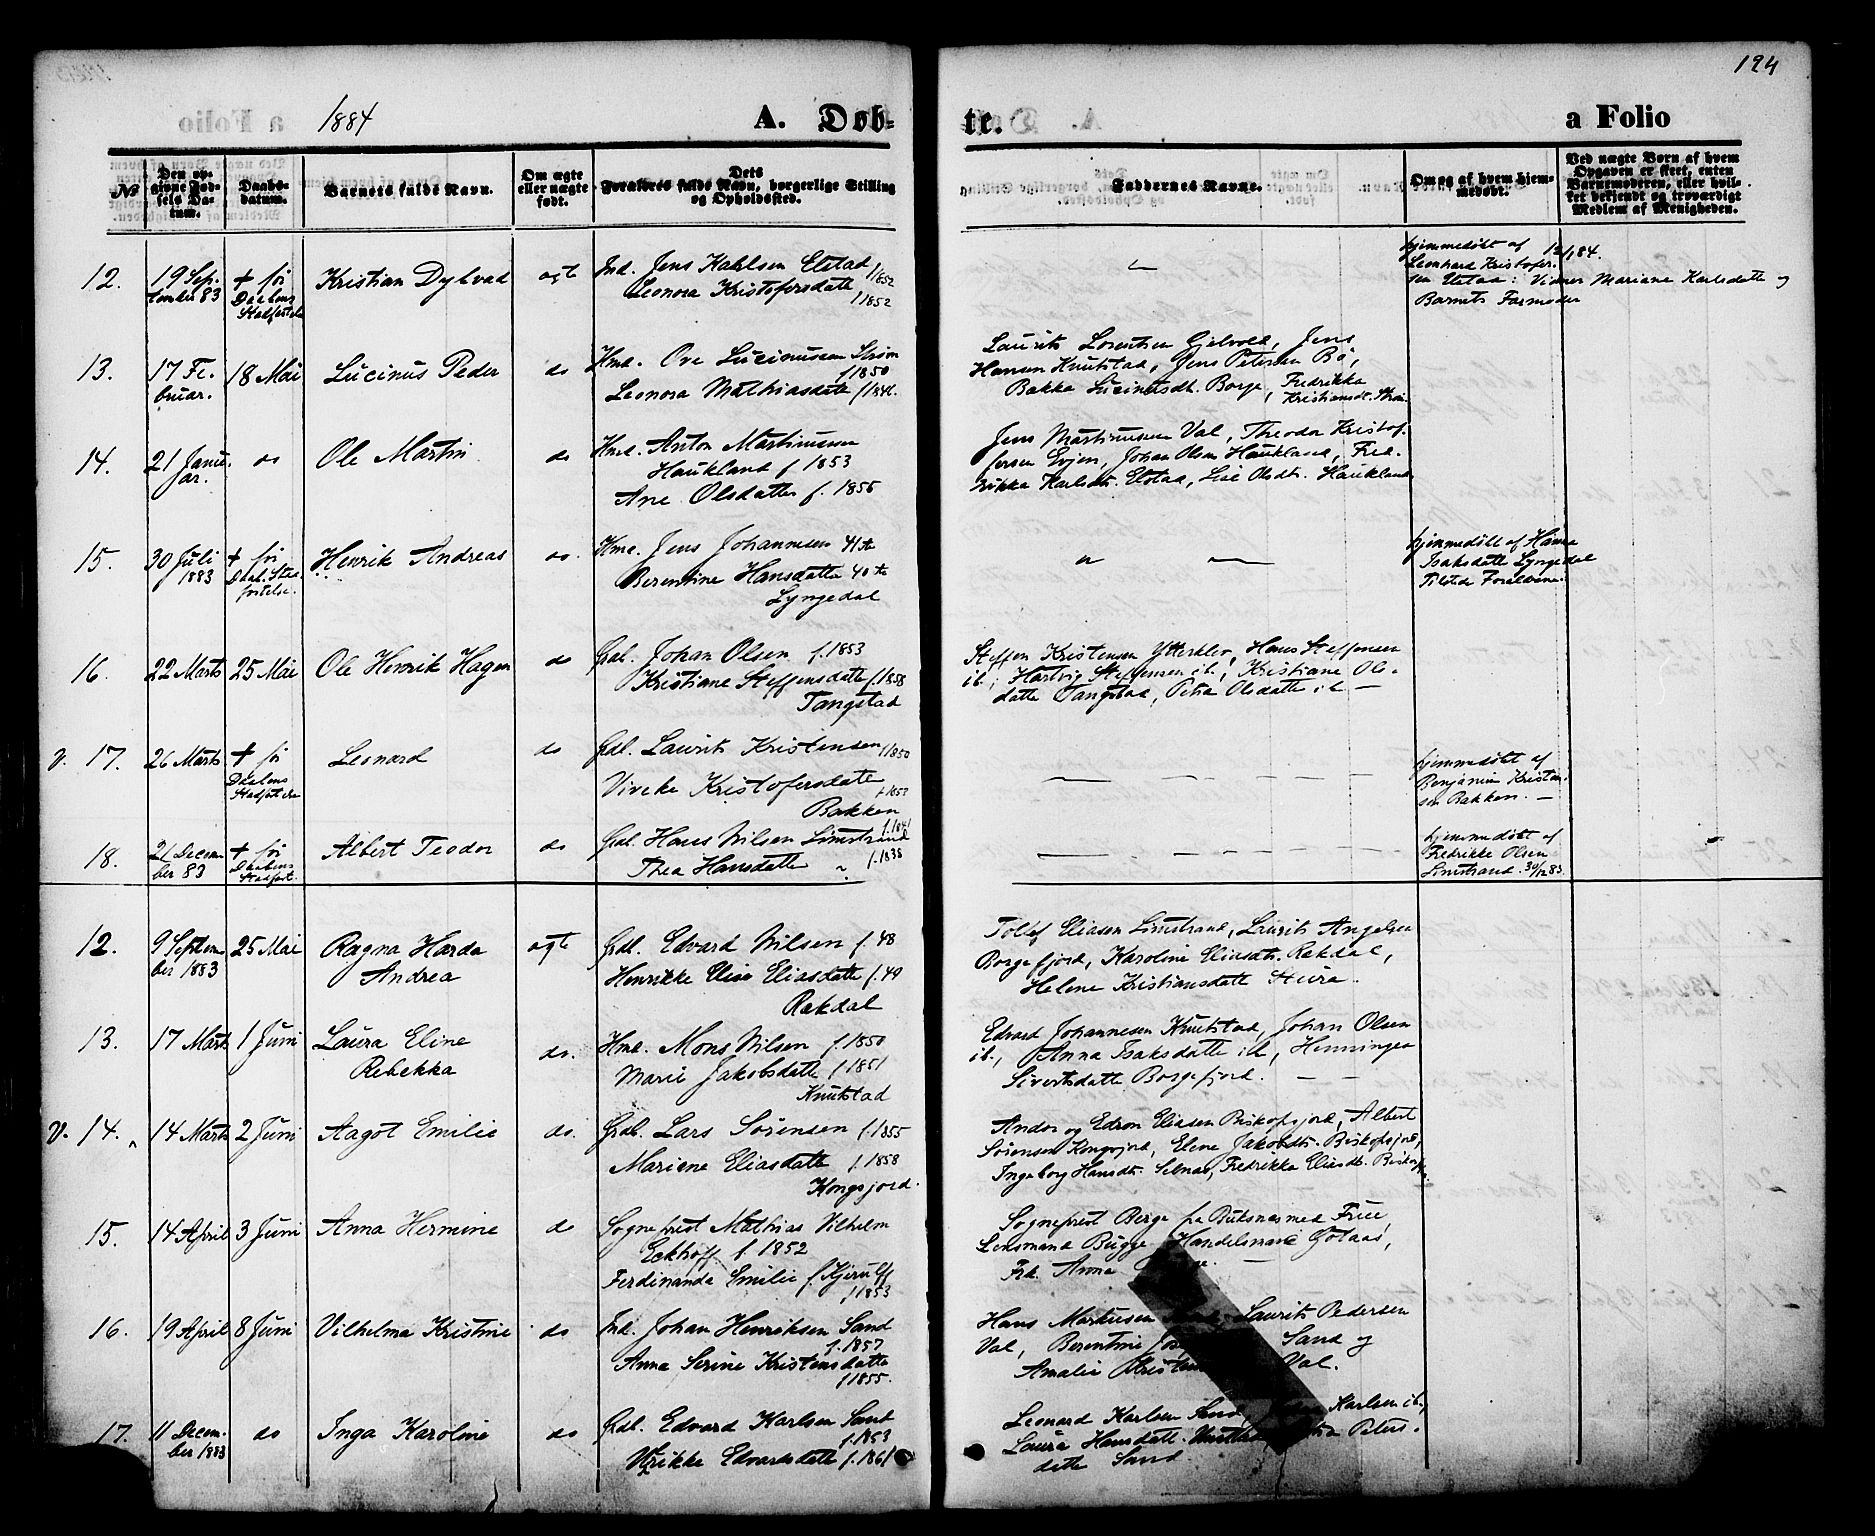 124
1884
A. Døb-
te.
a Folio
№
Den op-
givne Fød-
sels Da-
tum.
Daabs-
datum.
Barnets fulde Navn.
Om ægte
eller uægte
født.
Dets
Forældres fulde Navn, borgerlige Stilling
og Opholdssted.
Faddernes Navne.
Om og af hvem hjem-
medøbt.
Ved uægte Børn af hvem
Opgaven er skeet, enten
Barnemoderen, eller hvil-
ket bekjendt og troværdigt
Medlem af Menigheden.
12.
19 Sep-
tember 83
+ før
Daabens
Stadfæstelse
Kristian Dybvad
ægte
Ind. Jens Karlsen Elstad f 1852
Leonora Kristofersdatte f 1852
hjemmedøbt af
Leonhard Kristofer-
sen : Vidner Mariane Karlsdatte og
Barnets Farmoder
13.
17 Fe-
bruar.
18 Mai
Lucinus Peder
do
Hmd. Ove Lucinussen Strøm
f 1850
Leonora Mathiasdatte
Laurits Lorentsen Gjelvold, Jens
Hansen Knutstad, Jens Petersen Bø,
Bakka Lucinusdt. Borge, Fredrikka
Kristiansdt. Strøm
14.
21 Janu-
ar.
do
Ole Martin
do
Hmd. Anton Martinussen
Haukland f 1853
Ane Olsdatter f. 1856
Jens Martinussen Val, Theodor Kristof-
fersen Evjen, Johan Olsen Haukland, Fred-
rikka Karlsdt. Elstad, Lise Olsdt. Haukland
15.
30 Juli
1883
+ før
Daab. Stad-
fæstelse.
Henrik Andreas
do.
Hmd. Jens Johannesen 41 de
Berentine Hansdatte 40 de
Lyngedal
hjemmedøbt af Hanna
Isaksdatte Lyngedal
Tilstede Forældrene.
16.
22 Marts
25 Mai
Ole Henrik Hagen
do
Gbl. Johan Olsen f. 1853
Kristiane Steffensdatte f 1858
Tangstad
Steffen Kristensen Ytterklev, Hans Steffensen
ib., Hartvig Steffensen ib., Kristiane Ols-
datte Tangstad, Petra Olsdatte ib —
v. 17.
26 Marts
+ før
Daabens
Stadfæstelse
Leonard
do
Gbl. Laurits Kristensen f 1850
Viveke Kristofersdatte
f 1852
Bakken
hjemmedøbt af
Benjamin Kristen-
sen Bakken. —
18.
21 Decem-
ber 83
+ før
Daabens
Stadfæst.
Albert Teodor
do
Gbl. Hans Nilsen Limstrand f. 1841
Thea Hansdatte f. 1838
hjemmedøbt af
Fredrikke Olsen
Limstrand 30/12 83.
12.
9 Septem-
ber 1883
25 Mai
Ragna Harda
Andrea
ægte
Gbl. Edvard Nilsen f. 48
Henrikke Elise Eliasdatte f. 49
Rakdal
Tollef Eliasen Limstrand, Laurits Angelsen
Borgefjord, Karoline Eliasdt. Rakdal,
Helene Kristiansdatte Sture.
13.
17 Marts
1 Juni
Laura Eline
Rebekka
do.
Hmd. Mons Nilsen f. 1850
Marie Jakobsdatte f. 1851
Knutstad
Edvard Johannesen Knutstad, Johan Olsen
ib., Anna Isaksdatte ib, Henningea
Sivertsdatte Borgefjord. — —
v. 14.
14 Marts
2 Juni
Aagot Emilie
do.
Gbl. Lars Sørensen f. 1855
Mariene Eliasdatte f. 1858
Kongsjord.
Andor og Edron Eliasen Biskopsjord, Albert
Sørensen Kongsjord, Elene Jakobsdt. Biskopsjord,
Ingeborg Hansdt. Selnas, Fredrikka Eliasdt.
15.
14 April
3 Juni
Anna Hermine
do
Sogneprest Mathias Vilhelm
Eckhoff f. 1852
Ferdinanda Emilie f. Kjerulff
f 1853
Sogneprest Berge fra Buksnes med Frue,
Lensmand Bugge Handelsmand Gotaas,
Frk. Anna
16.
19 April
8 Juni
Vilhelma Kristine
do
Ind. Johan Henriksen Sand
f. 1857
Anna Serine Kristensdatte
f 1855.
Hans Martesen Laurits Pedersen
Val, Berentine Sand og
Amalie Val.
17.
11 Decem-
ber 1883
do
Inga Karoline
do
Gbl. Edvard Karlsen Sand
f. 1853
Ulrikke Edvardsdatte f. 1861
Leonard Karlsen Sand, Karlsen ib.,
Laura Hansdatte Peters-
datte Sand.